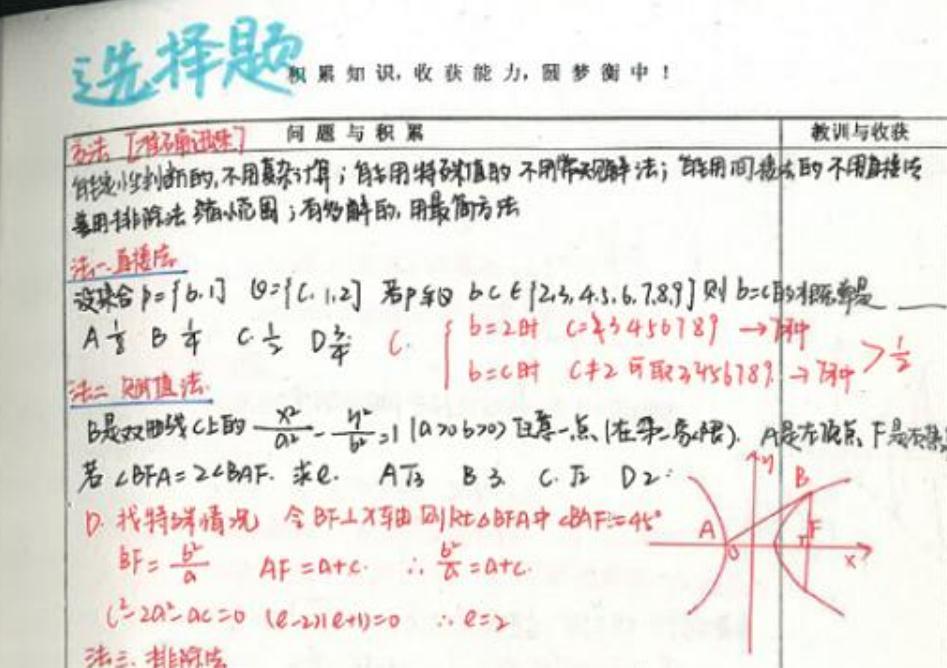 选择题
积累知识，收获能力，圆梦衡中！
问题与积累 教训与收获
方法 [准确迅速]
能定性判断的，不用复杂计算；能用特殊值的 不用常规解法；能用间接法的 不用直接法
善用排除法 缩小范围；有多解的，用最简方法
法一 直接法
设集合 P={b,1} Q={C,1,2} 若P⊆Q b c∈{2,3,4,5,6,7,8,9} 则 b=c的概率是 ____
A 1/8 B 1/4 C 1/2 D 3/4 C.
b=2时 C=3456789 →7种
b=c时 C≠2 可取3456789 →7种 > 1/2
法二 赋值法
B是双曲线C上的 x²/a² - y²/b² =1 (a>0 b>0) 任意一点，(在第一象限). A是左顶点, F是右焦
若 ∠BFA=2∠BAF. 求e. A √3 B 3. C. √2 D 2.
D. 找特殊情况 令BF⊥x轴 则Rt△BFA中 ∠BAF=45°
BF= b²/a AF=a+c. ∴ b²/a =a+c.
c²-2a²-ac=0 (e-2)(e+1)=0 ∴ e=2
y
B
A
F
x
法三. 排除法